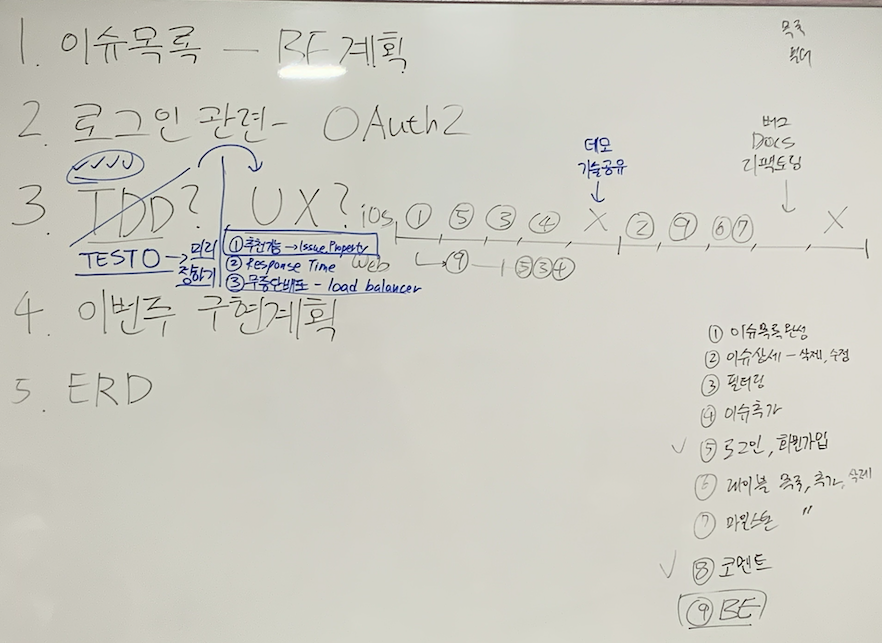 1. 이슈목록 - BE 계획
목록
필터
2. 로그인 관련 - OAuth2
3. TDD? UX?
TESTO → 미리
정하기
① 추천기능 → Issue Property
② Response Time
③ 무중단배포 - load balancer
iOS ① ⑤ ③ ④ X ② ⑨ ⑥ ⑦ X
Web ⑨ - ⑤ ③ ④
데모
기술공유
버그
Docs
리팩토링
4. 이번주 구현계획
5. ERD
① 이슈목록 완성
② 이슈상세 - 삭제, 수정
③ 필터링
④ 이슈추가
✓ ⑤ 로그인, 회원가입
⑥ 레이블 목록, 추가, 삭제
⑦ 마일스톤 "
✓ ⑧ 코멘트
⑨ BE